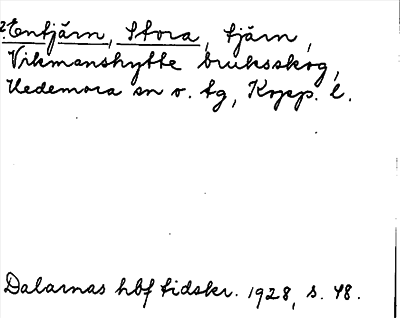 2. Entjärn, Stora, tjärn,
Vikmanshytte bruksskog,
Hedemora sn o. tg, Kopp. l.
Dalarnas hbf tidskr. 1928, s. 48.